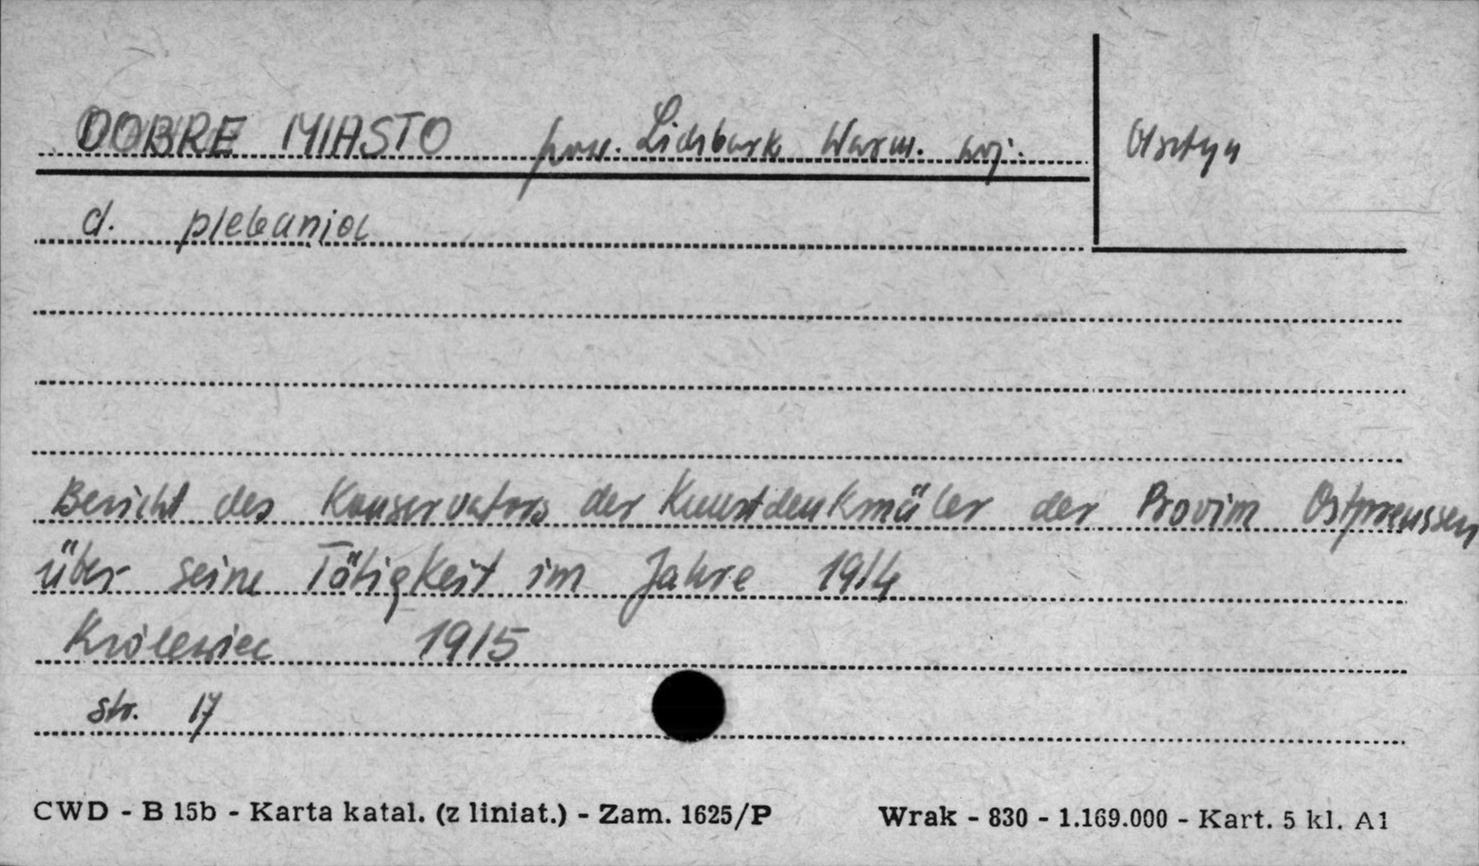 DOBRE MIASTO pow. Lidzbark Warm. woj. Olsztyn
d. plebania
Bericht des Konservators der Kunstdenkmäler der Provinz Ostpreussen
über seine Tätigkeit im Jahre 1914
Królewiec 1915
str. 17
CWD - B 15b - Karta katal. (z liniat.) - Zam. 1625/P Wrak - 830 - 1.169.000 - Kart. 5 kl. A1